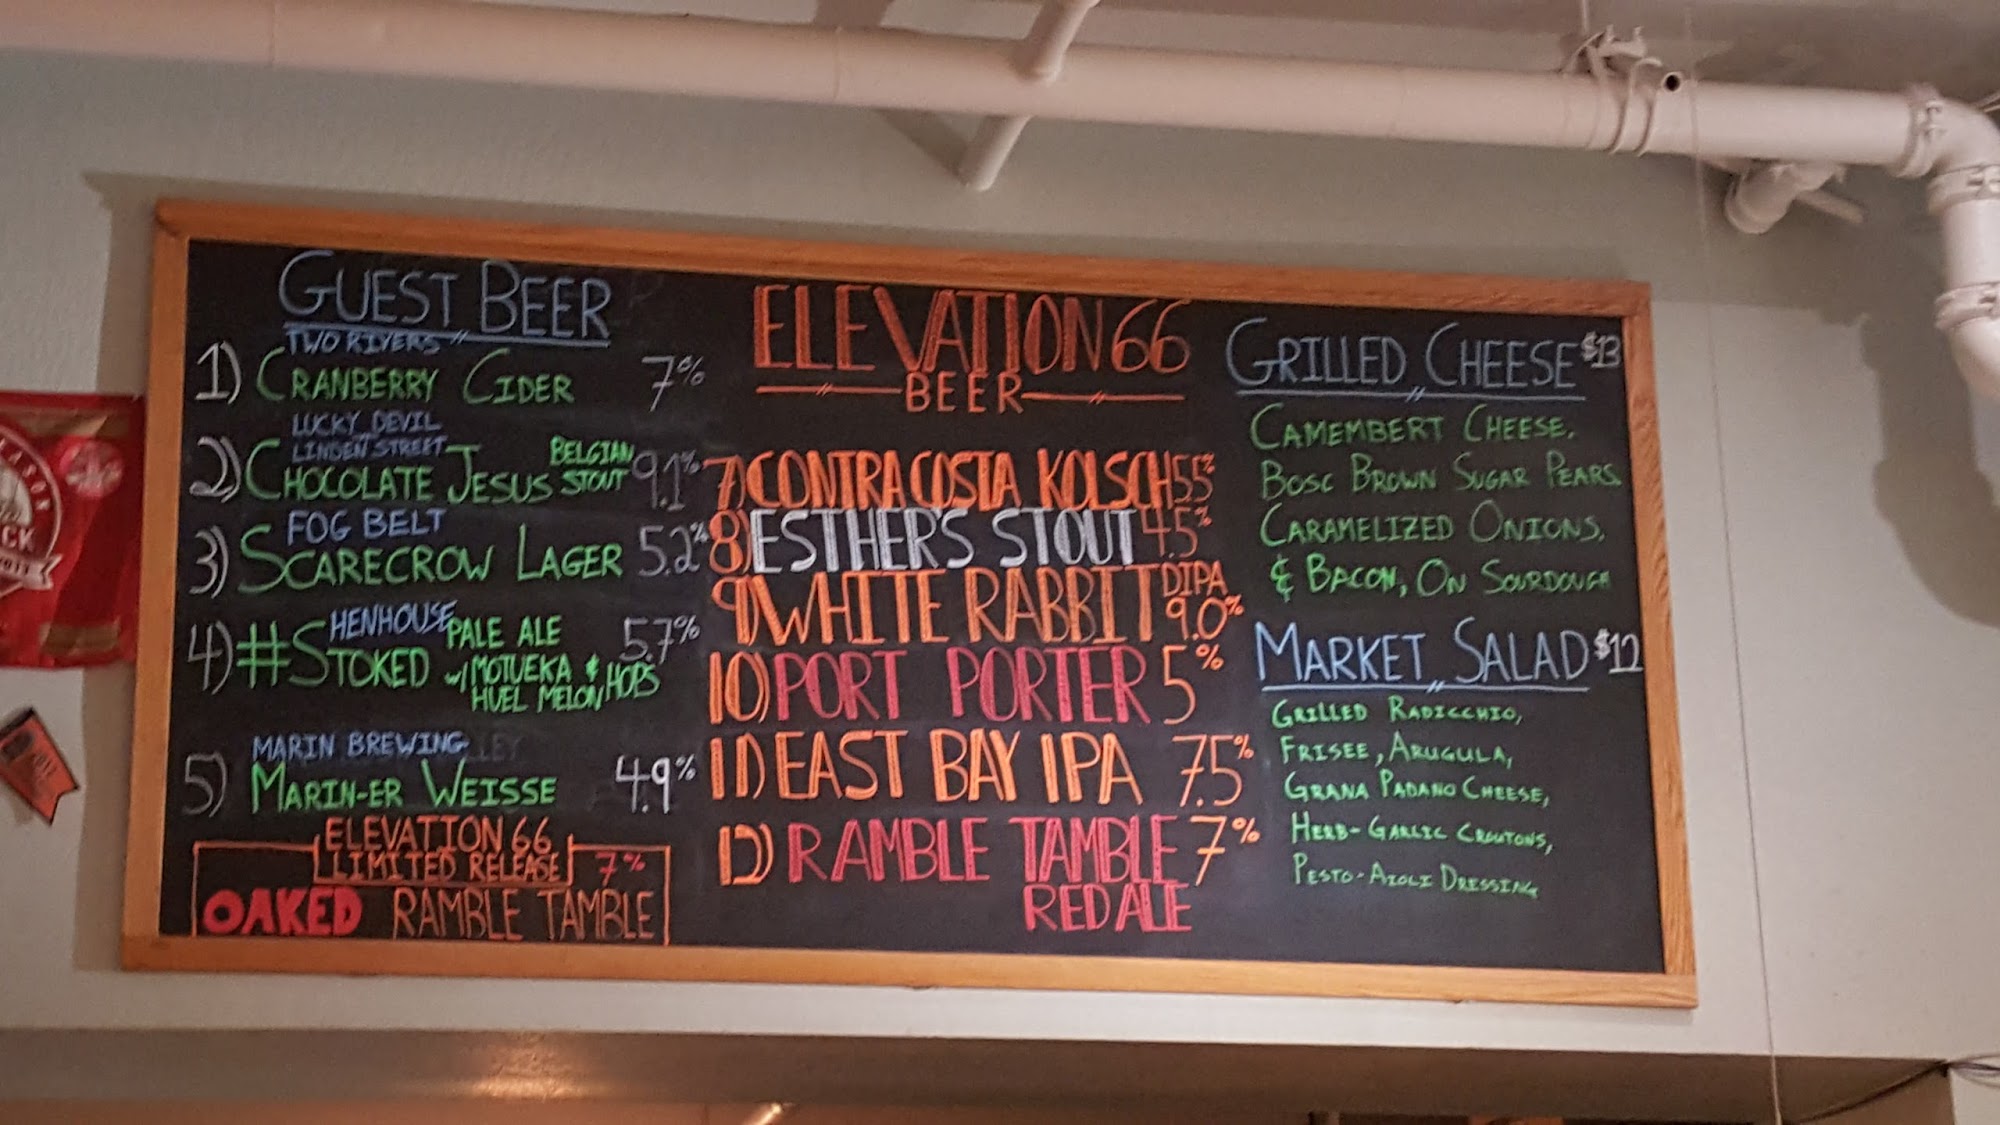 GUEST BEER
TWO RIVERS
1) CRANBERRY CIDER 7%
LUCKY DEVIL
LINDEN STREET
2) CHOCOLATE JESUS BELGIAN STOUT 9.1%
FOG BELT
3) SCARECROW LAGER 5.2%
HENHOUSE
4) #STOKED PALE ALE 5.7%
w/ MOTUEKA &
HUEL MELON HOPS
MARIN BREWING
5) MARIN-ER WEISSE 4.9%
ELEVATION 66
LIMITED RELEASE 7%
OAKED RAMBLE TAMBLE
ELEVATION 66
BEER
7) CONTRA COSTA KOLSCH 5.5%
8) ESTHER'S STOUT 4.5%
9) WHITE RABBIT DIPA 9.0%
10) PORT PORTER 5%
11) EAST BAY IPA 7.5%
12) RAMBLE TAMBLE 7%
RED ALE
GRILLED CHEESE $13
CAMEMBERT CHEESE,
BOSC BROWN SUGAR PEARS
CARAMELIZED ONIONS,
& BACON, ON SOURDOUGH
MARKET SALAD $12
GRILLED RADICCHIO,
FRISEE, ARUGULA,
GRANA PADANO CHEESE,
HERB-GARLIC CROUTONS,
PESTO-AIOLI DRESSING